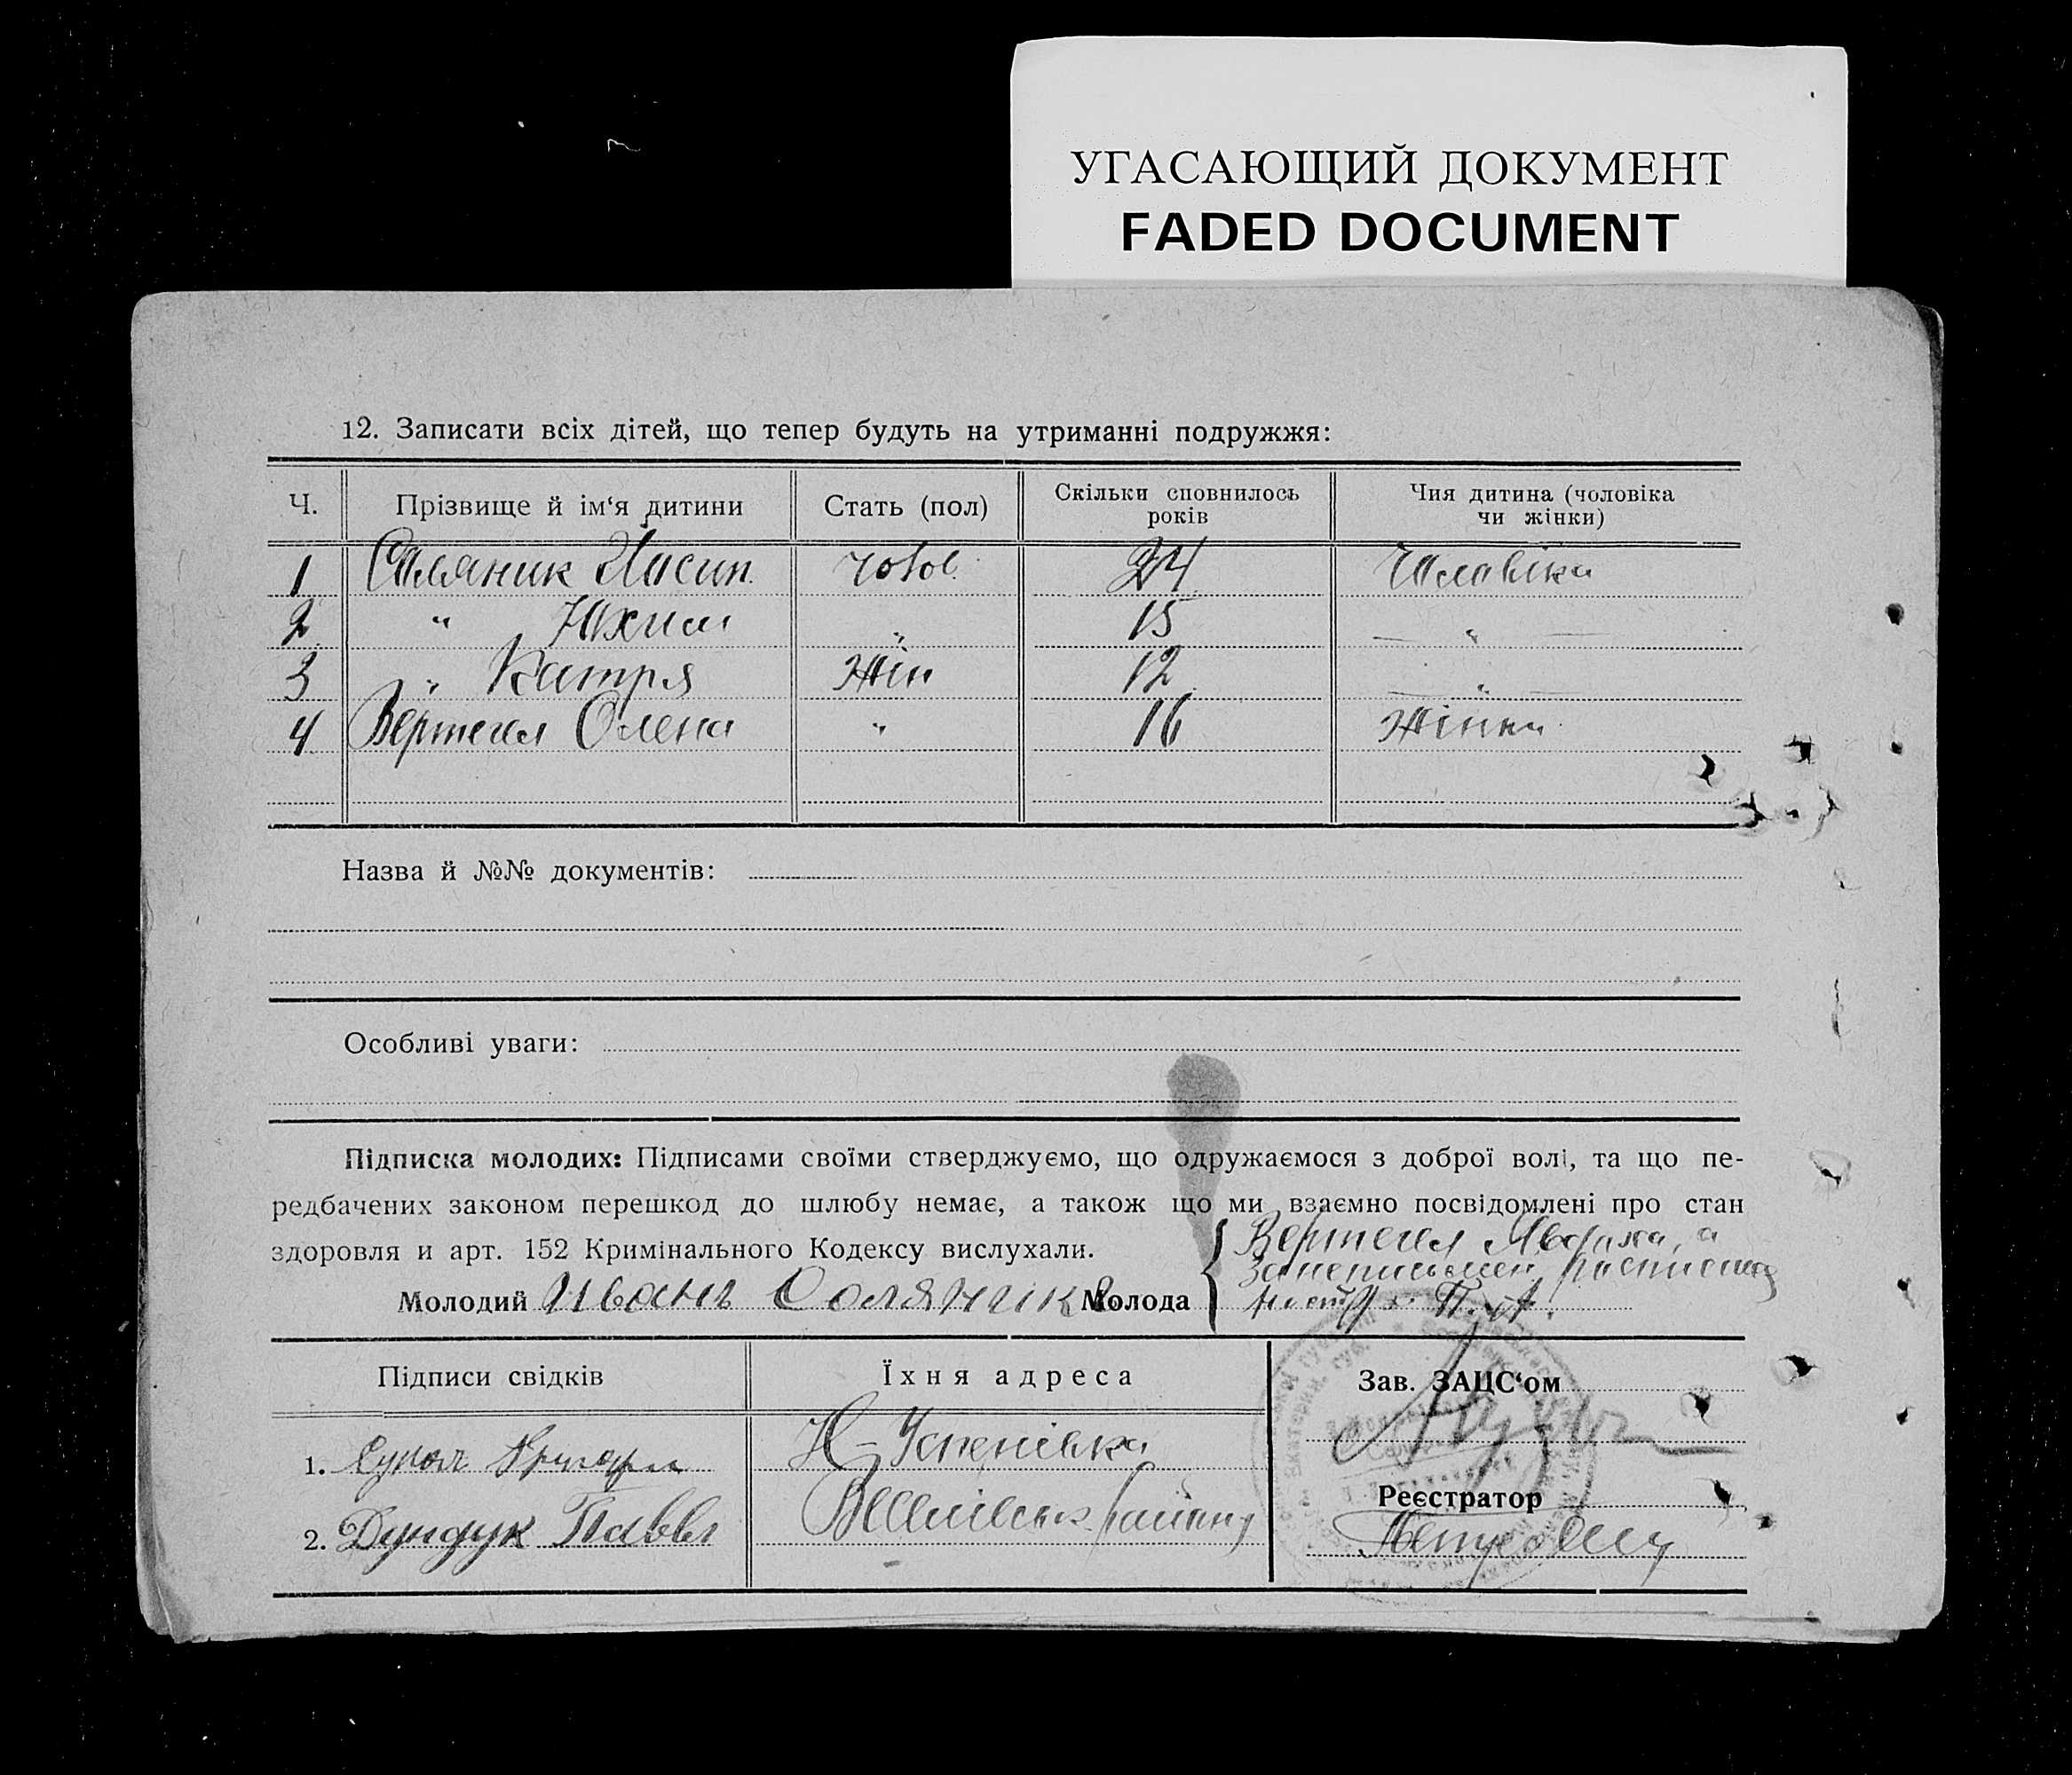 УГАСАЮЩИЙ ДОКУМЕНТ
FADED DOCUMENT
12. Записати всіх дітей, що тепер будуть на утриманні подружжя:
Ч. Прізвище й ім‘я дитини Стать (пол) Скільки сповнилось років Чия дитина (чоловіка чи жінки)
1 Соляник Йосип чолов. 24 Чоловіка
2 " Юхим " 15 — " —
3 " Катря жін 12 — " —
4 Вертегел Олена " 16 Жінки
Назва й №№ документів:
Особливі уваги:
Підписка молодих: Підписами своїми стверджуємо, що одружаємося з доброї волі, та що пе-
редбачених законом перешкод до шлюбу немає, а також що ми взаємно посвідомлені про стан
здоровля и арт. 152 Кримінального Кодексу вислухали.
Вертегел а
Молодий Иванъ Солянік Молода
Підписи свідків Їхня адреса Зав. ЗАЦС‘ом
1. Н-Успенівка
Реєстратор
2. Дундук Павел Веселівськ. району